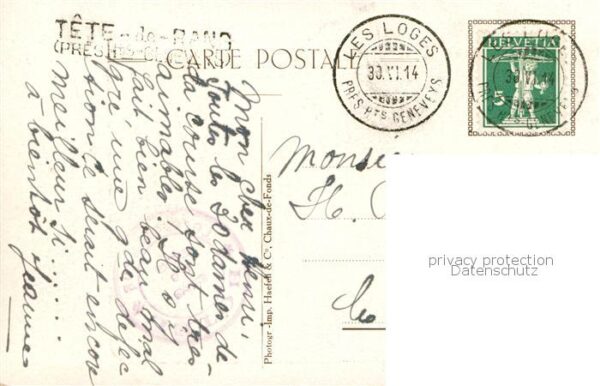 TÊTE-de-RANG
(PRÈS Hts-G
CARTE POSTALE
LES LOGES
30.VI.14
PRÈS Hts GENEVEYS
HELVETIA
5
LES LOGES
30.VI.14
Mon cher Henri,
Toutes les Dodames de
la course sont très
aimables. Il
fait bien beau mal
gré une qde de jec
tion ce serait encore
meilleur si.....
à bientôt Jeanne
Photogr.-Imp. Haefeli & Co, Chaux-de-Fonds
Monsie
H.
privacy protection
Datenschutz